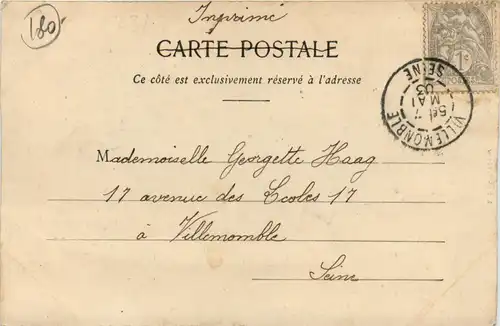 180
Imprimé
CARTE POSTALE
Ce côté est exclusivement réservé à l'adresse
VILLEMOMBLE
SEINE
7
MAI
03
Mademoiselle Georgette Haag
17 avenue des Ecoles 17
à Villemomble
Seine